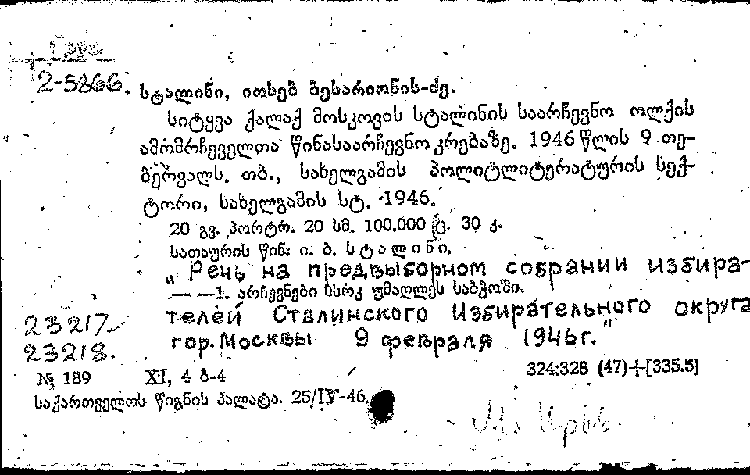 2-5866.
სტალინი, იოსებ ბესარიონის-ძე.
სიტყვა ქალაქ მოსკოვის სტალინის საარჩევნო ოლქის
ამომრჩეველთა წინასაარჩევნო კრებაზე. 1946 წლის 9 თე-
ბერვალს. თბ., სახელგამის პოლიტლიტერატურის სექ-
ტორი, სახელგამის სტ. 1946.
20 გვ. პორტრ. 20 სმ. 100.000 ც. 30 კ.
სათაურის წინ: ი. ბ. სტალინი.
„Речь на предвыборном собрании избира-
— —1. არჩევნები სსრკ უმაღლეს საბჭოში.
23217 телей Сталинского Избирательного округа
23218. гор. Москвы 9 февраля 1946г."
№ 189 XI, 4 ბ-4 324:328 (47)+[335.5]
საქართველოს წიგნის პალატა. 25/IV-46.